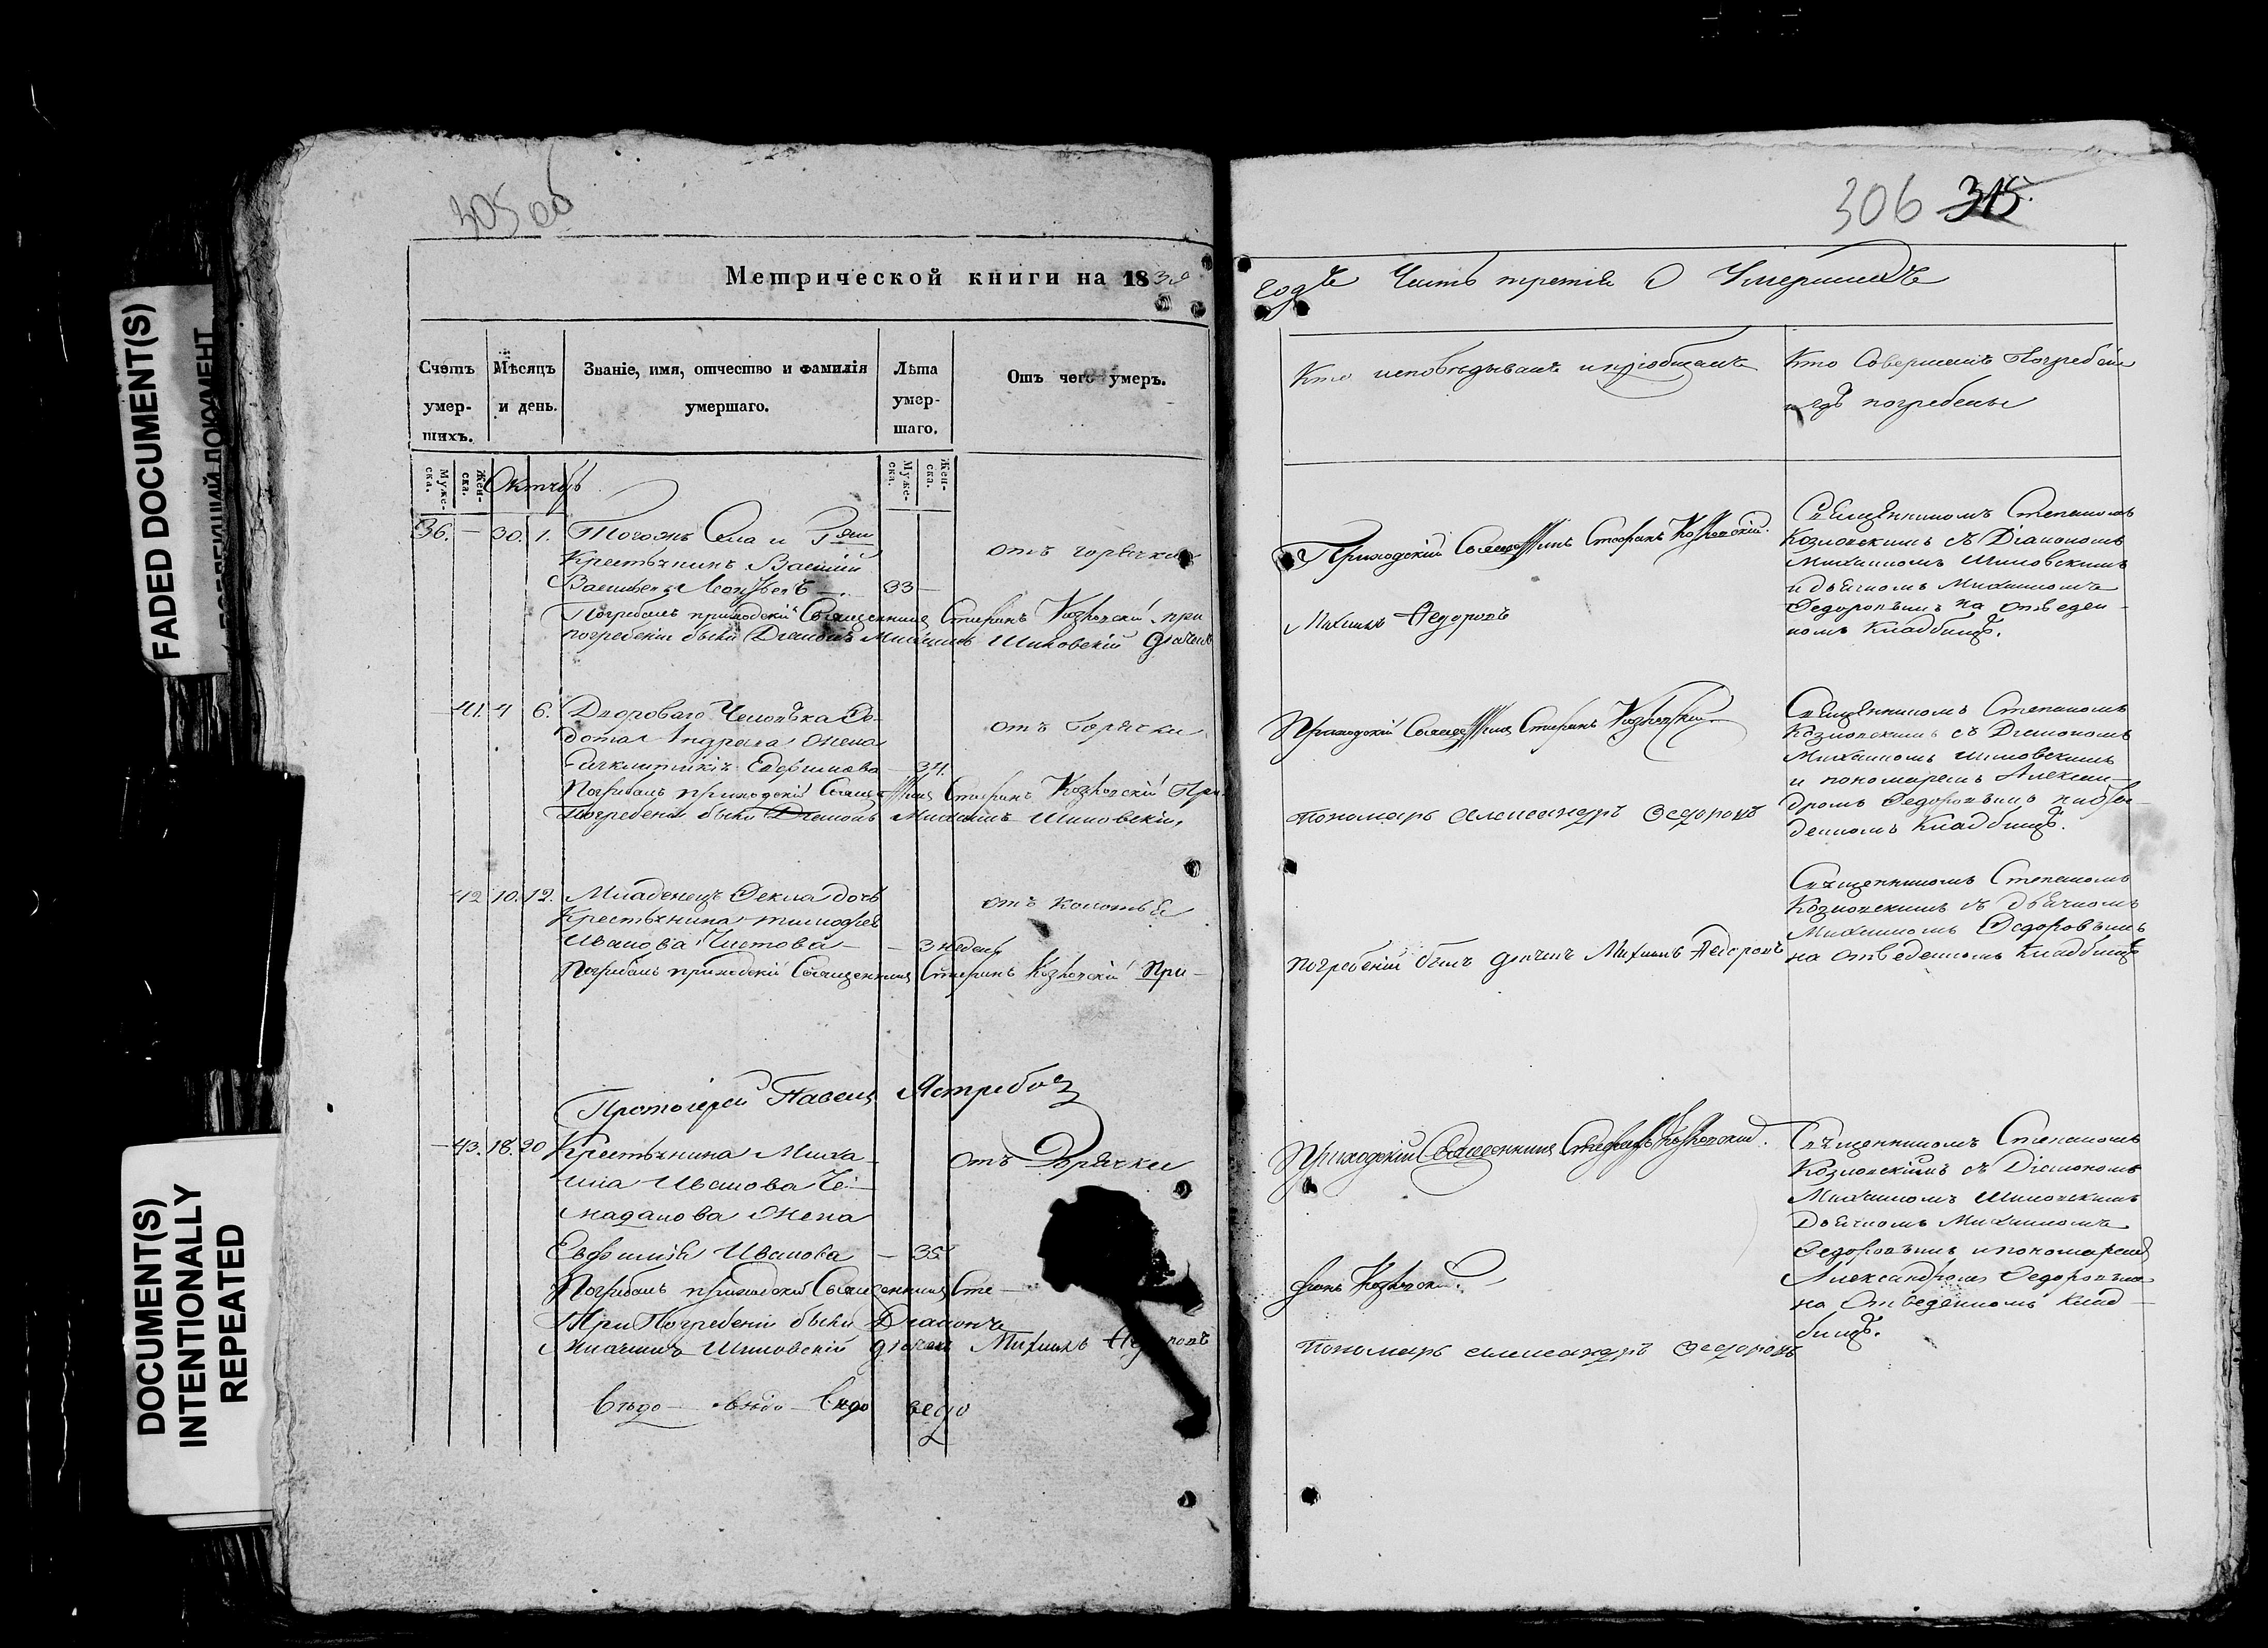 305 об
306 315.
Метрической книги на 1839
годъ Часть третія О Умершихъ
Счетъ умер-шихъ.
Мѣсяцъ и день.
Званіе, имя, отчество и фамилія умершаго.
Лѣта умер-шаго.
Отъ чего умеръ.
Кто исповѣдывалъ и пріобщалъ
Кто Совершалъ Погребеніе
и гдѣ погребены
Муже-ска.
Жен-ска.
Муже-ска.
Жен-ска.
Октябрь
36. — 30. 1. Тогожъ Села и
Крестьянинъ Василій
Васильевъ 33 —
отъ горячки
Погребалъ приходскій Священникъ Стефанъ Козловскій при
погребеніи были Діаконъ Михаилъ Шиловскій дьячекъ
Приходскій Священникъ Стефанъ Козловскій.
Михаилъ Федоровъ
Священникомъ Степаномъ
Козловскимъ съ Діакономъ
Михаиломъ Шиловскимъ
и дьячкомъ Михаиломъ
Федоровымъ на отведен-
номъ Кладбищѣ.
— 41. 4 6. Двороваго Человѣка Ѳе-
дота Андреева Жена
Ефимова — 34.
отъ Горячки
Погребалъ приходскій Священникъ Стефанъ Козловскій При
Погребеніи были Діаконъ Михаилъ Шиловскій,
Приходскій Священникъ Стефанъ Козловскій
Пономарь Александръ Федоровъ
Священникомъ Степаномъ
Козловскимъ съ Діакономъ
Михаиломъ Шиловскимъ
и пономаремъ Алексан-
дромъ Федоровымъ
Кладбищѣ.
42 10. 12. Младенецъ Фекла дочь
Крестьянина Тимофея
Иванова Чистова — — 3 недели
отъ колотья
Погребалъ приходскій Священникъ Стефанъ Козловскій При-
погребеніи былъ дьячекъ Михаилъ Федоровъ
Священникомъ Степаномъ
Козловскимъ съ дьячкомъ
Михаиломъ Федоровымъ
на отведенномъ Кладбищѣ
Протоіерей Павелъ Ястребовъ
— 43. 18. 20 Крестьянина Миха-
ила Иванова Че-
маданова Жена
Евфимія Иванова — 35.
отъ Горячки
Погребалъ приходскій Священникъ Сте-
При Погребеніи были Діаконъ
Михаилъ Шиловскій дьячекъ Михаилъ Федоровъ
Приходскій Священникъ Стефанъ Козловскій.
фанъ Козловскій.
Пономарь Александръ Федоровъ
Священникомъ Степаномъ
Козловскимъ съ Діакономъ
Михаиломъ Шиловскимъ
Дьячкомъ Михаиломъ
Федоровымъ и пономаремъ
Александромъ Федоровымъ
на Отведенномъ Клад-
бищѣ.
FADED DOCUMENT(S)
DOCUMENT(S)
INTENTIONALLY
REPEATED